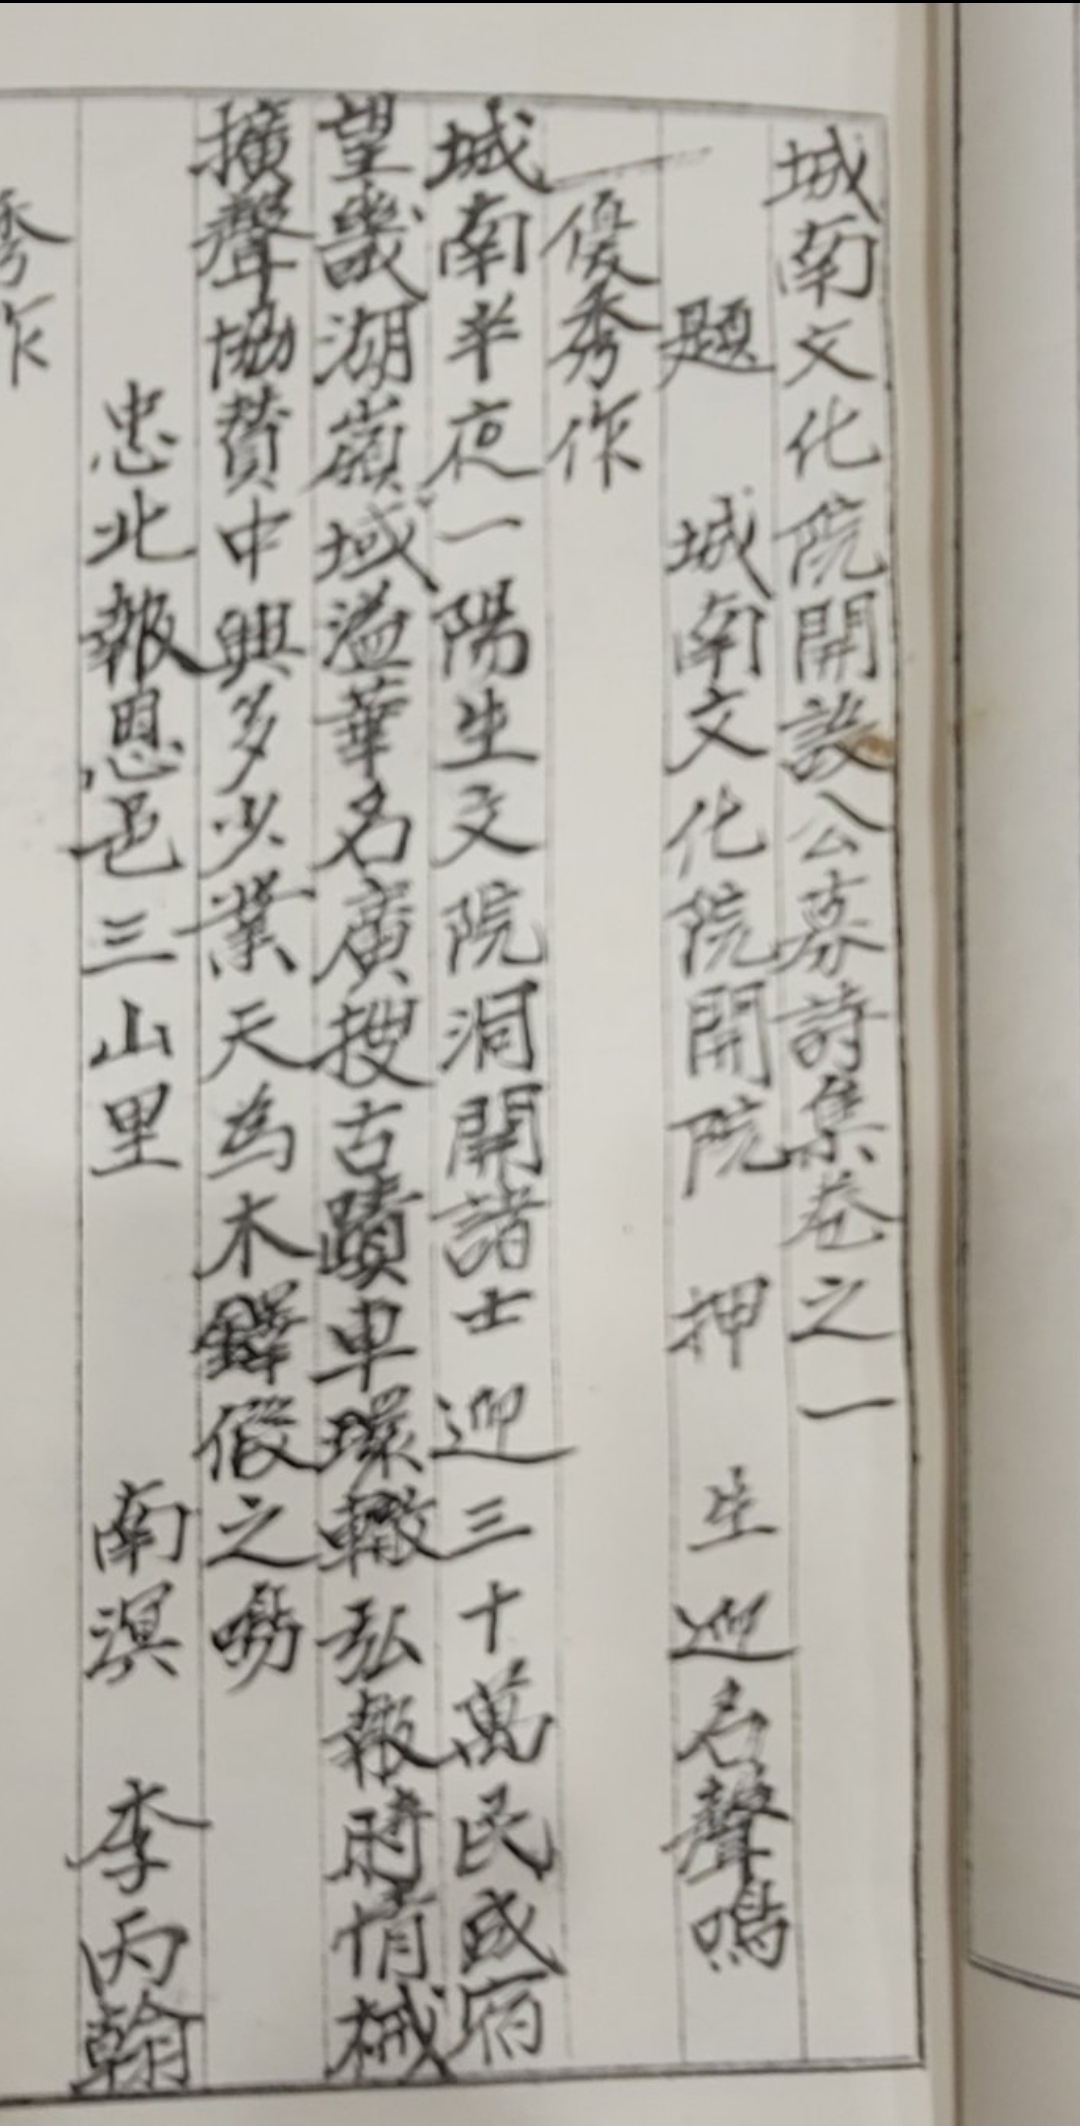 城南文化院開設公募詩集卷之一
題 城南文化院開院 押 生迎名聲鳴
一優秀作
城南半夜一陽生文院洞開諸士迎三十萬民成宿
望畿湖嶺域溢華名廣搜古蹟車環轍弘報時情械
擴聲協贊中興多少業天為木鐸假之鳴
忠北報恩邑三山里 南溟 李丙翰
秀作